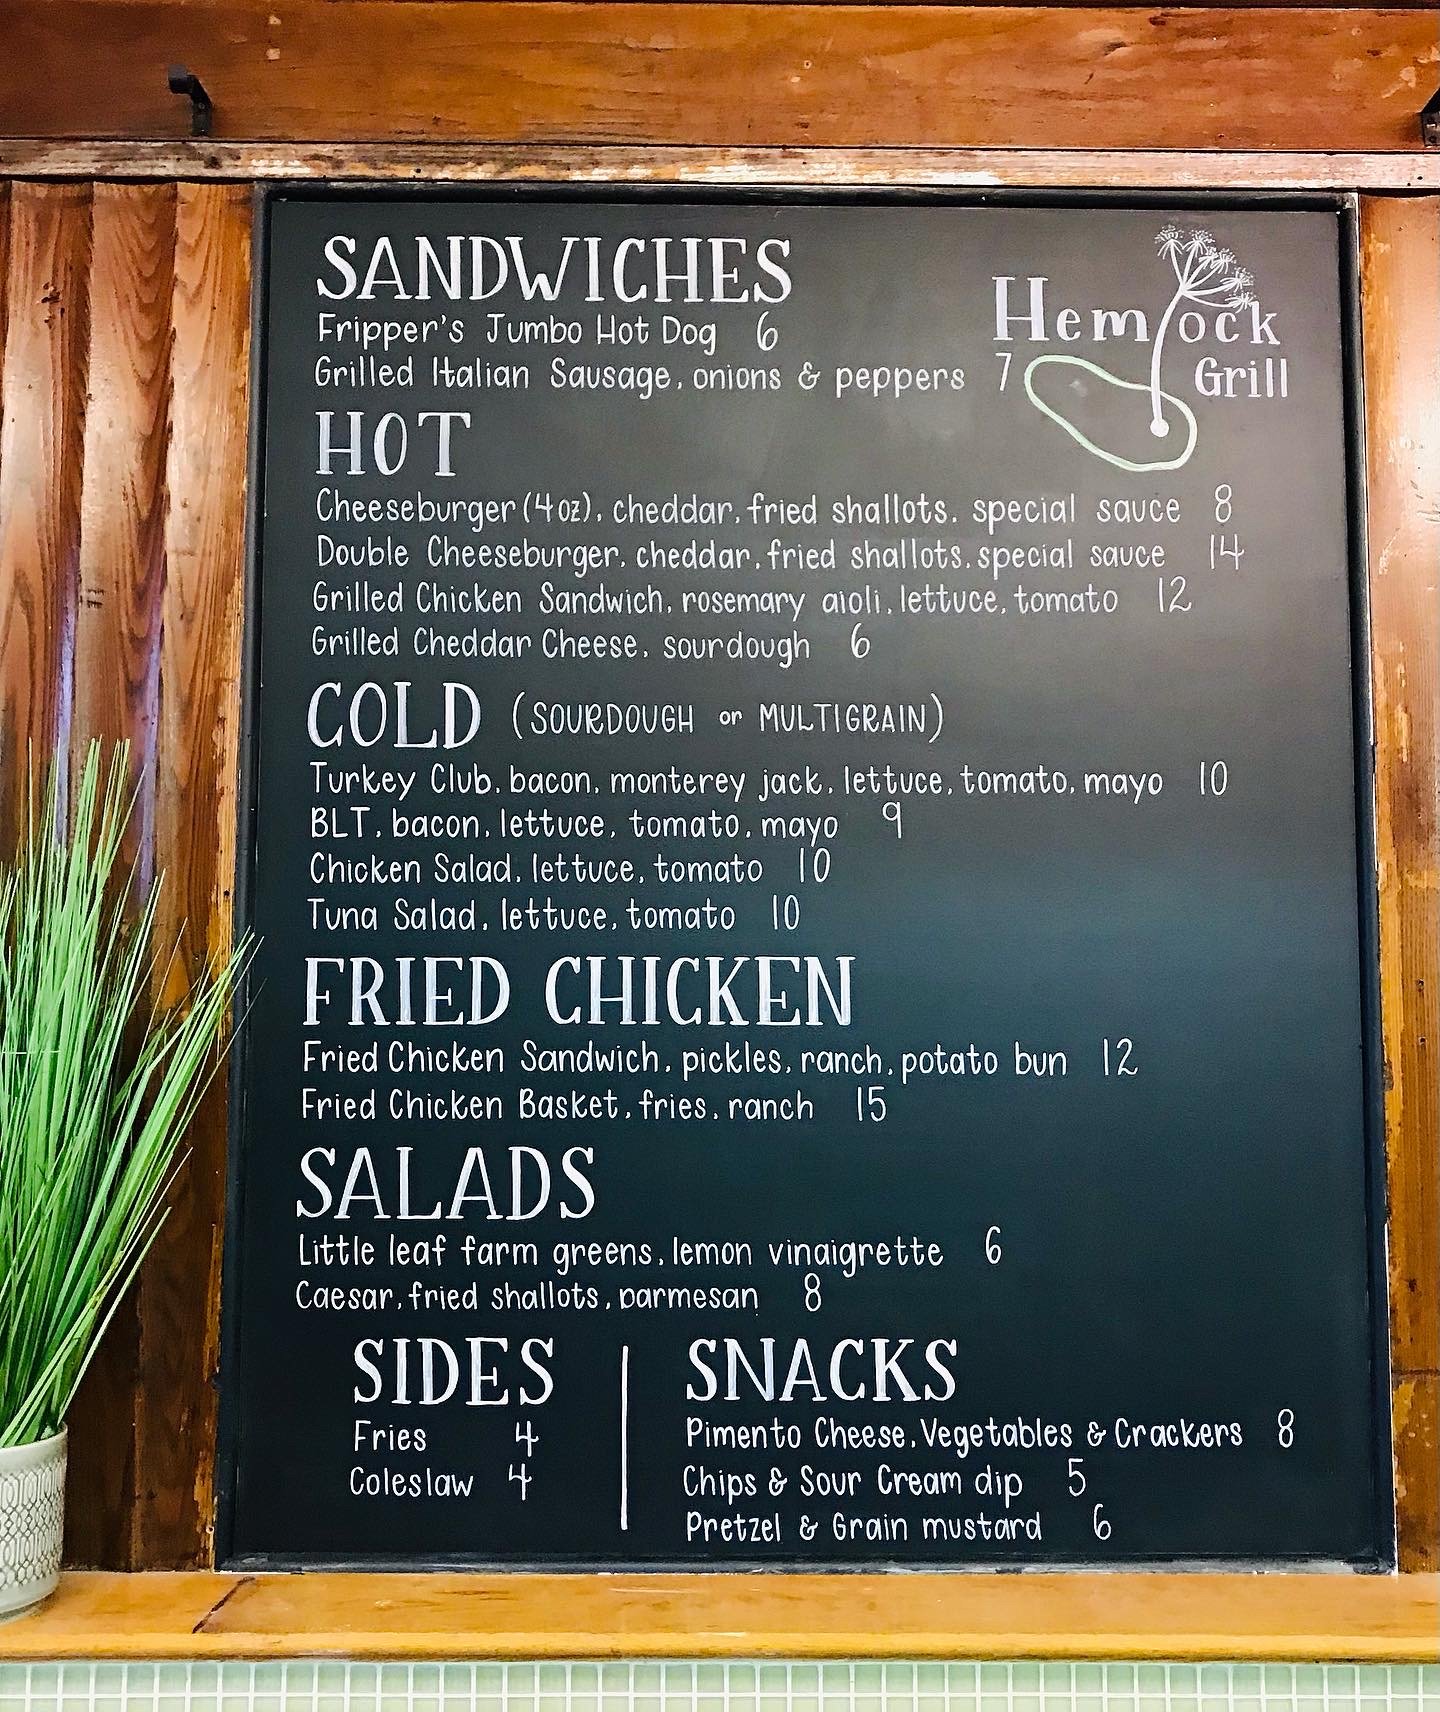 SANDWICHES
Fripper's Jumbo Hot Dog 6
Grilled Italian Sausage, onions & peppers 7
Hemlock
Grill
HOT
Cheeseburger (4oz), cheddar, fried shallots, special sauce 8
Double Cheeseburger, cheddar, fried shallots, special sauce 14
Grilled Chicken Sandwich, rosemary aioli, lettuce, tomato 12
Grilled Cheddar Cheese, sourdough 6
COLD (SOURDOUGH or MULTIGRAIN)
Turkey Club, bacon, monterey jack, lettuce, tomato, mayo 10
BLT, bacon, lettuce, tomato, mayo 9
Chicken Salad, lettuce, tomato 10
Tuna Salad, lettuce, tomato 10
FRIED CHICKEN
Fried Chicken Sandwich, pickles, ranch, potato bun 12
Fried Chicken Basket, fries, ranch 15
SALADS
Little leaf farm greens, lemon vinaigrette 6
Caesar, fried shallots, parmesan 8
SIDES
Fries 4
Coleslaw 4
SNACKS
Pimento Cheese, Vegetables & Crackers 8
Chips & Sour Cream dip 5
Pretzel & Grain mustard 6